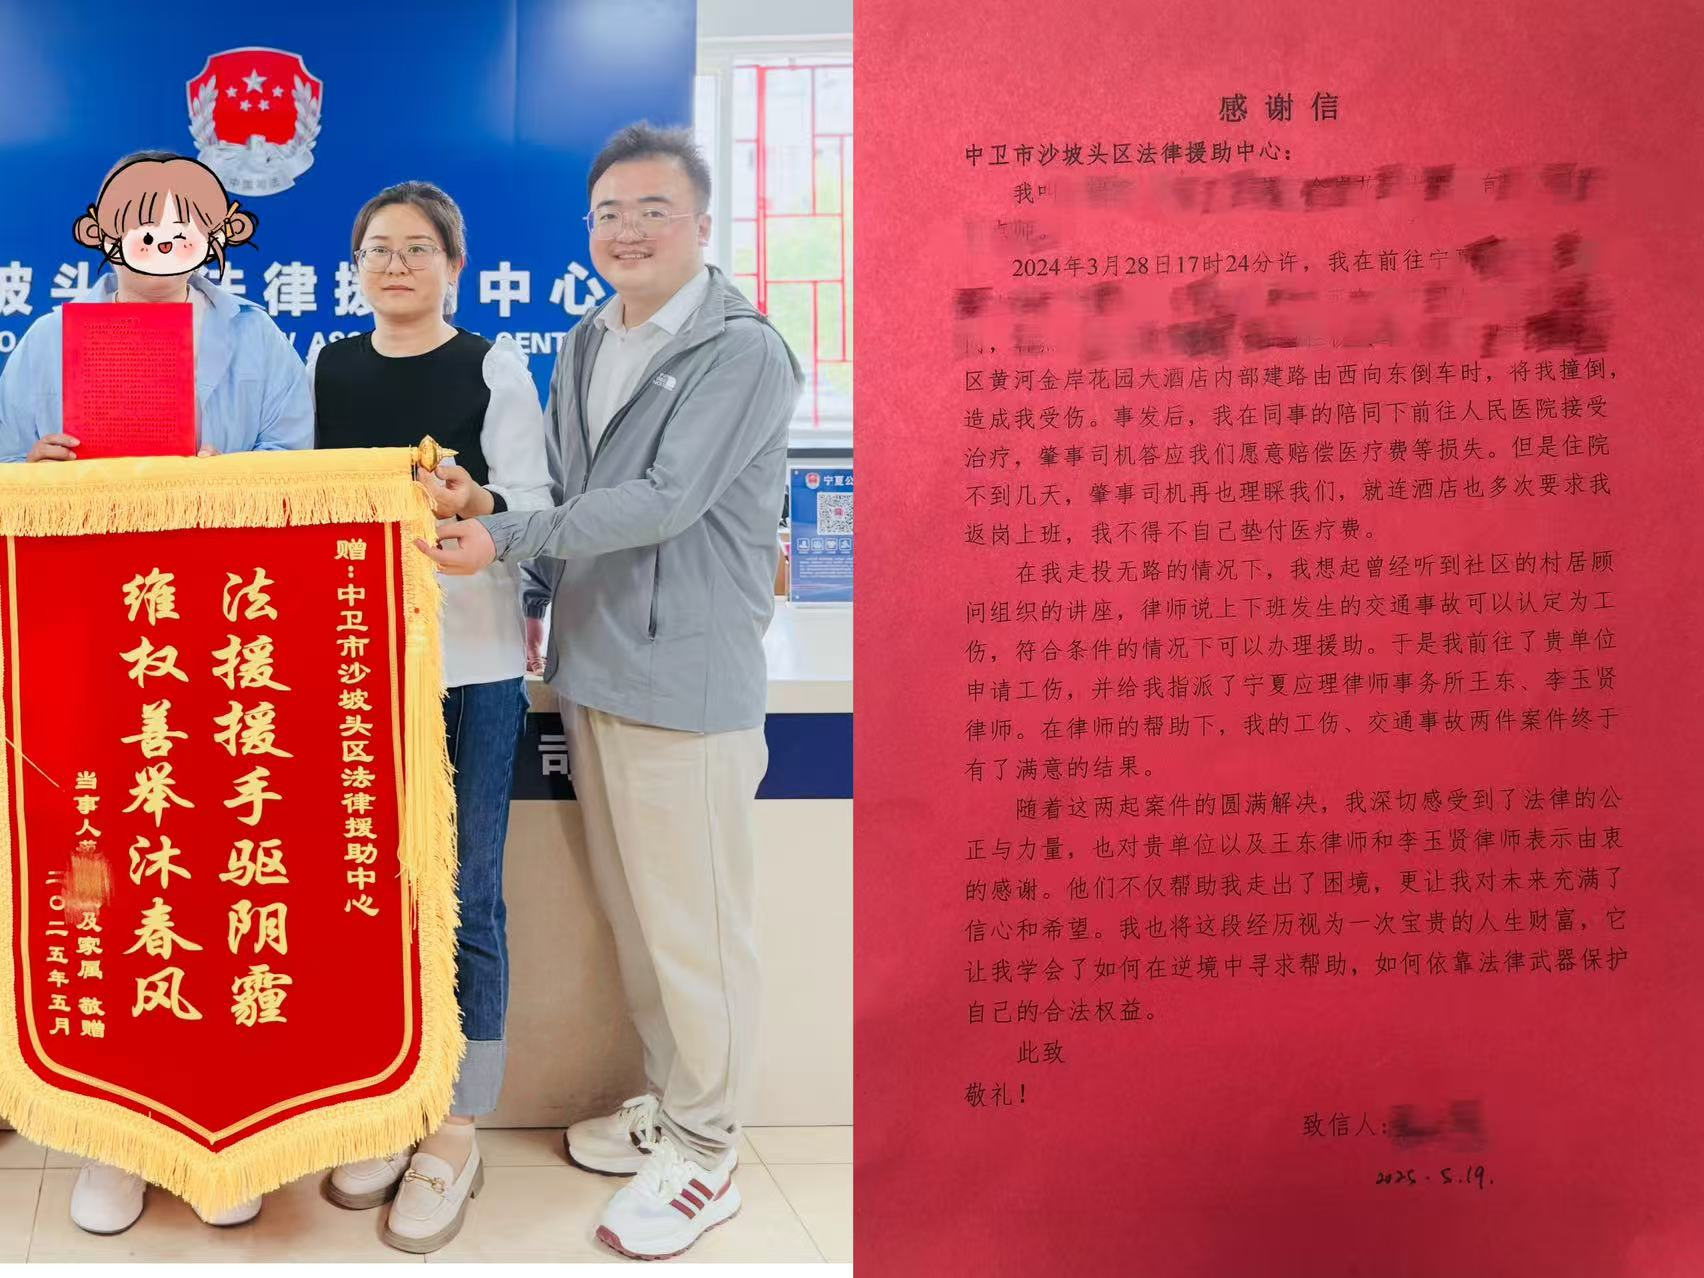 中国司法
坡头
法律援
中心
CENT
宁夏公
司
赠：中卫市沙坡头区法律援助中心
法援援手驱阴霾
维权善举沐春风
当事人
及家属 敬赠
二〇二五年五月
感谢信
中卫市沙坡头区法律援助中心：
我叫
师。
2024年3月28日17时24分许，我在前往宁
区黄河金岸花园大酒店内部建路由西向东倒车时，将我撞倒，
造成我受伤。事发后，我在同事的陪同下前往人民医院接受
治疗，肇事司机答应我们愿意赔偿医疗费等损失。但是住院
不到几天，肇事司机再也理睬我们，就连酒店也多次要求我
返岗上班，我不得不自己垫付医疗费。
在我走投无路的情况下，我想起曾经听到社区的村居顾
问组织的讲座，律师说上下班发生的交通事故可以认定为工
伤，符合条件的情况下可以办理援助。于是我前往了贵单位
申请工伤，并给我指派了宁夏应理律师事务所王东、李玉贤
律师。在律师的帮助下，我的工伤、交通事故两件案件终于
有了满意的结果。
随着这两起案件的圆满解决，我深切感受到了法律的公
正与力量，也对贵单位以及王东律师和李玉贤律师表示由衷
的感谢。他们不仅帮助我走出了困境，更让我对未来充满了
信心和希望。我也将这段经历视为一次宝贵的人生财富，它
让我学会了如何在逆境中寻求帮助，如何依靠法律武器保护
自己的合法权益。
此致
敬礼！
致信人：
2025.5.19.